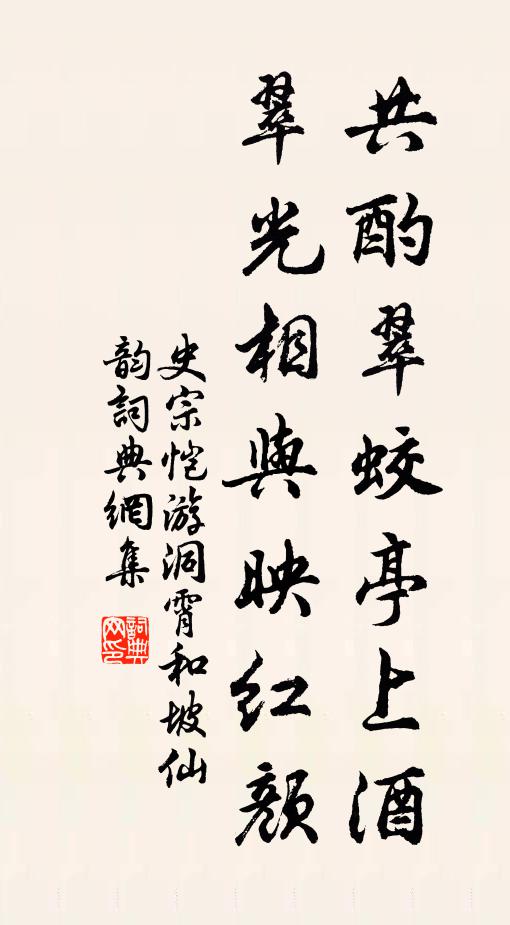 共酌翠蛟亭上酒
翠光相與映红顏
史宗恺游洞霄和坡仙
韵詞典網集
詞典网印